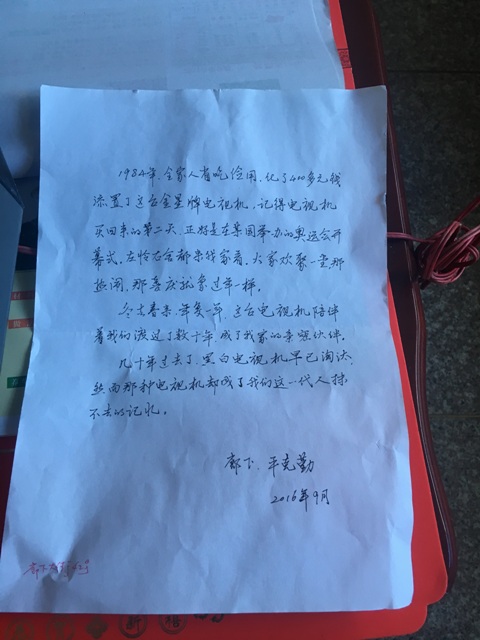 1984年,全家人省吃俭用,化了400多元钱
添置了这台金星牌电视机,记得电视机
买回来的第二天,正好是在美国举办的奥运会开
幕式,左恰右舍都来我家看,大家欢聚一堂那
热闹,那喜庆就象过年一样。
冬去春来,年复一年,这台电视机陪伴
着我们渡过了数十年成了我家的亲密伙伴。
几十年过去了,黑白电视机早已淘汰
然而那种电视机却成了我们这一代人抹
不去的记忆。
部下、平克勤
2016年9月